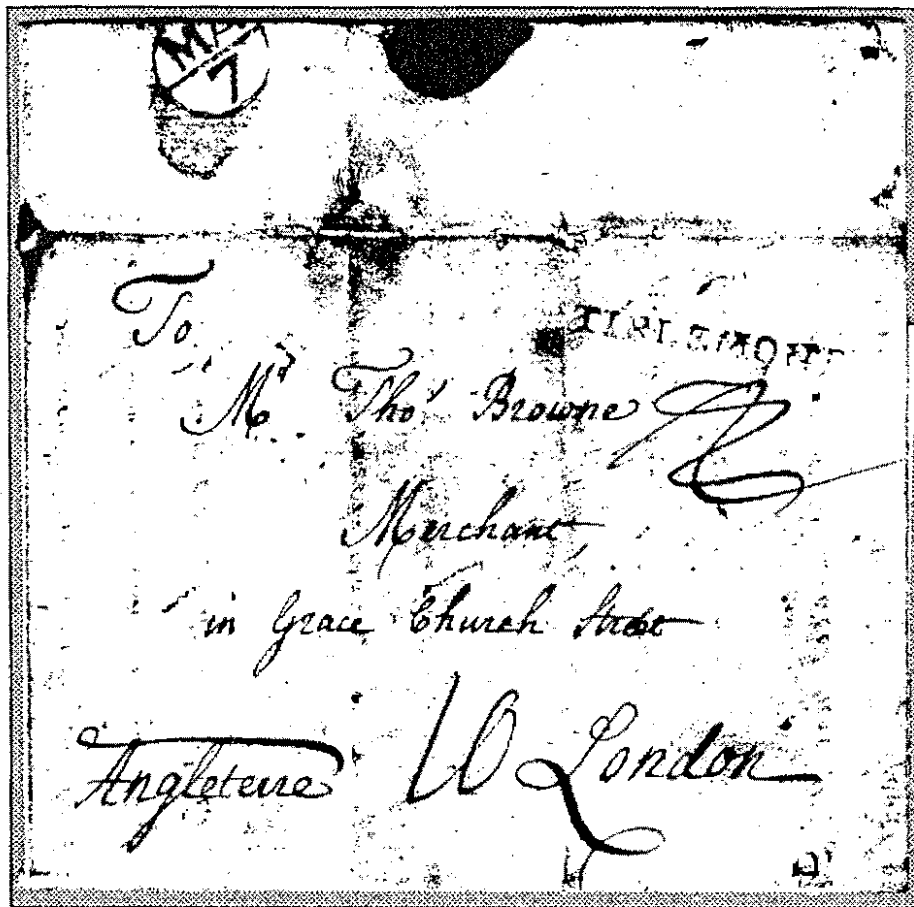 MA
7
TIRLEMONT
To
Mr Tho' Browne
Merchant
in Grace Church Street
Angleterre 10 London